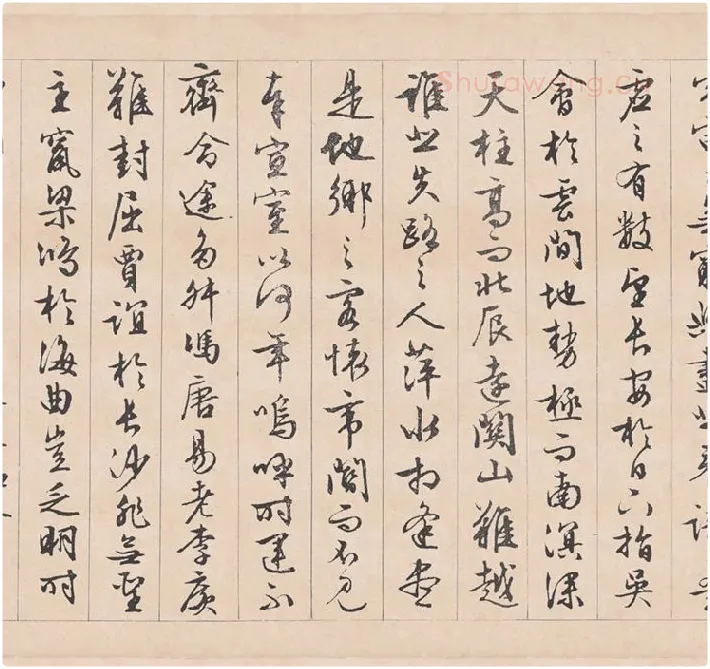 虛之有數望長安於日下指吳
會於雲間地勢極而南溟深
天柱高而北辰遠關山難越
誰悲失路之人萍水相逢盡
是他鄉之客懷帝閽而不見
奉宣室以何年嗚呼時運不
齊命途多舛馮唐易老李廣
難封屈賈誼於長沙非無聖
主竄梁鴻於海曲豈乏明時
Shufawang.cn